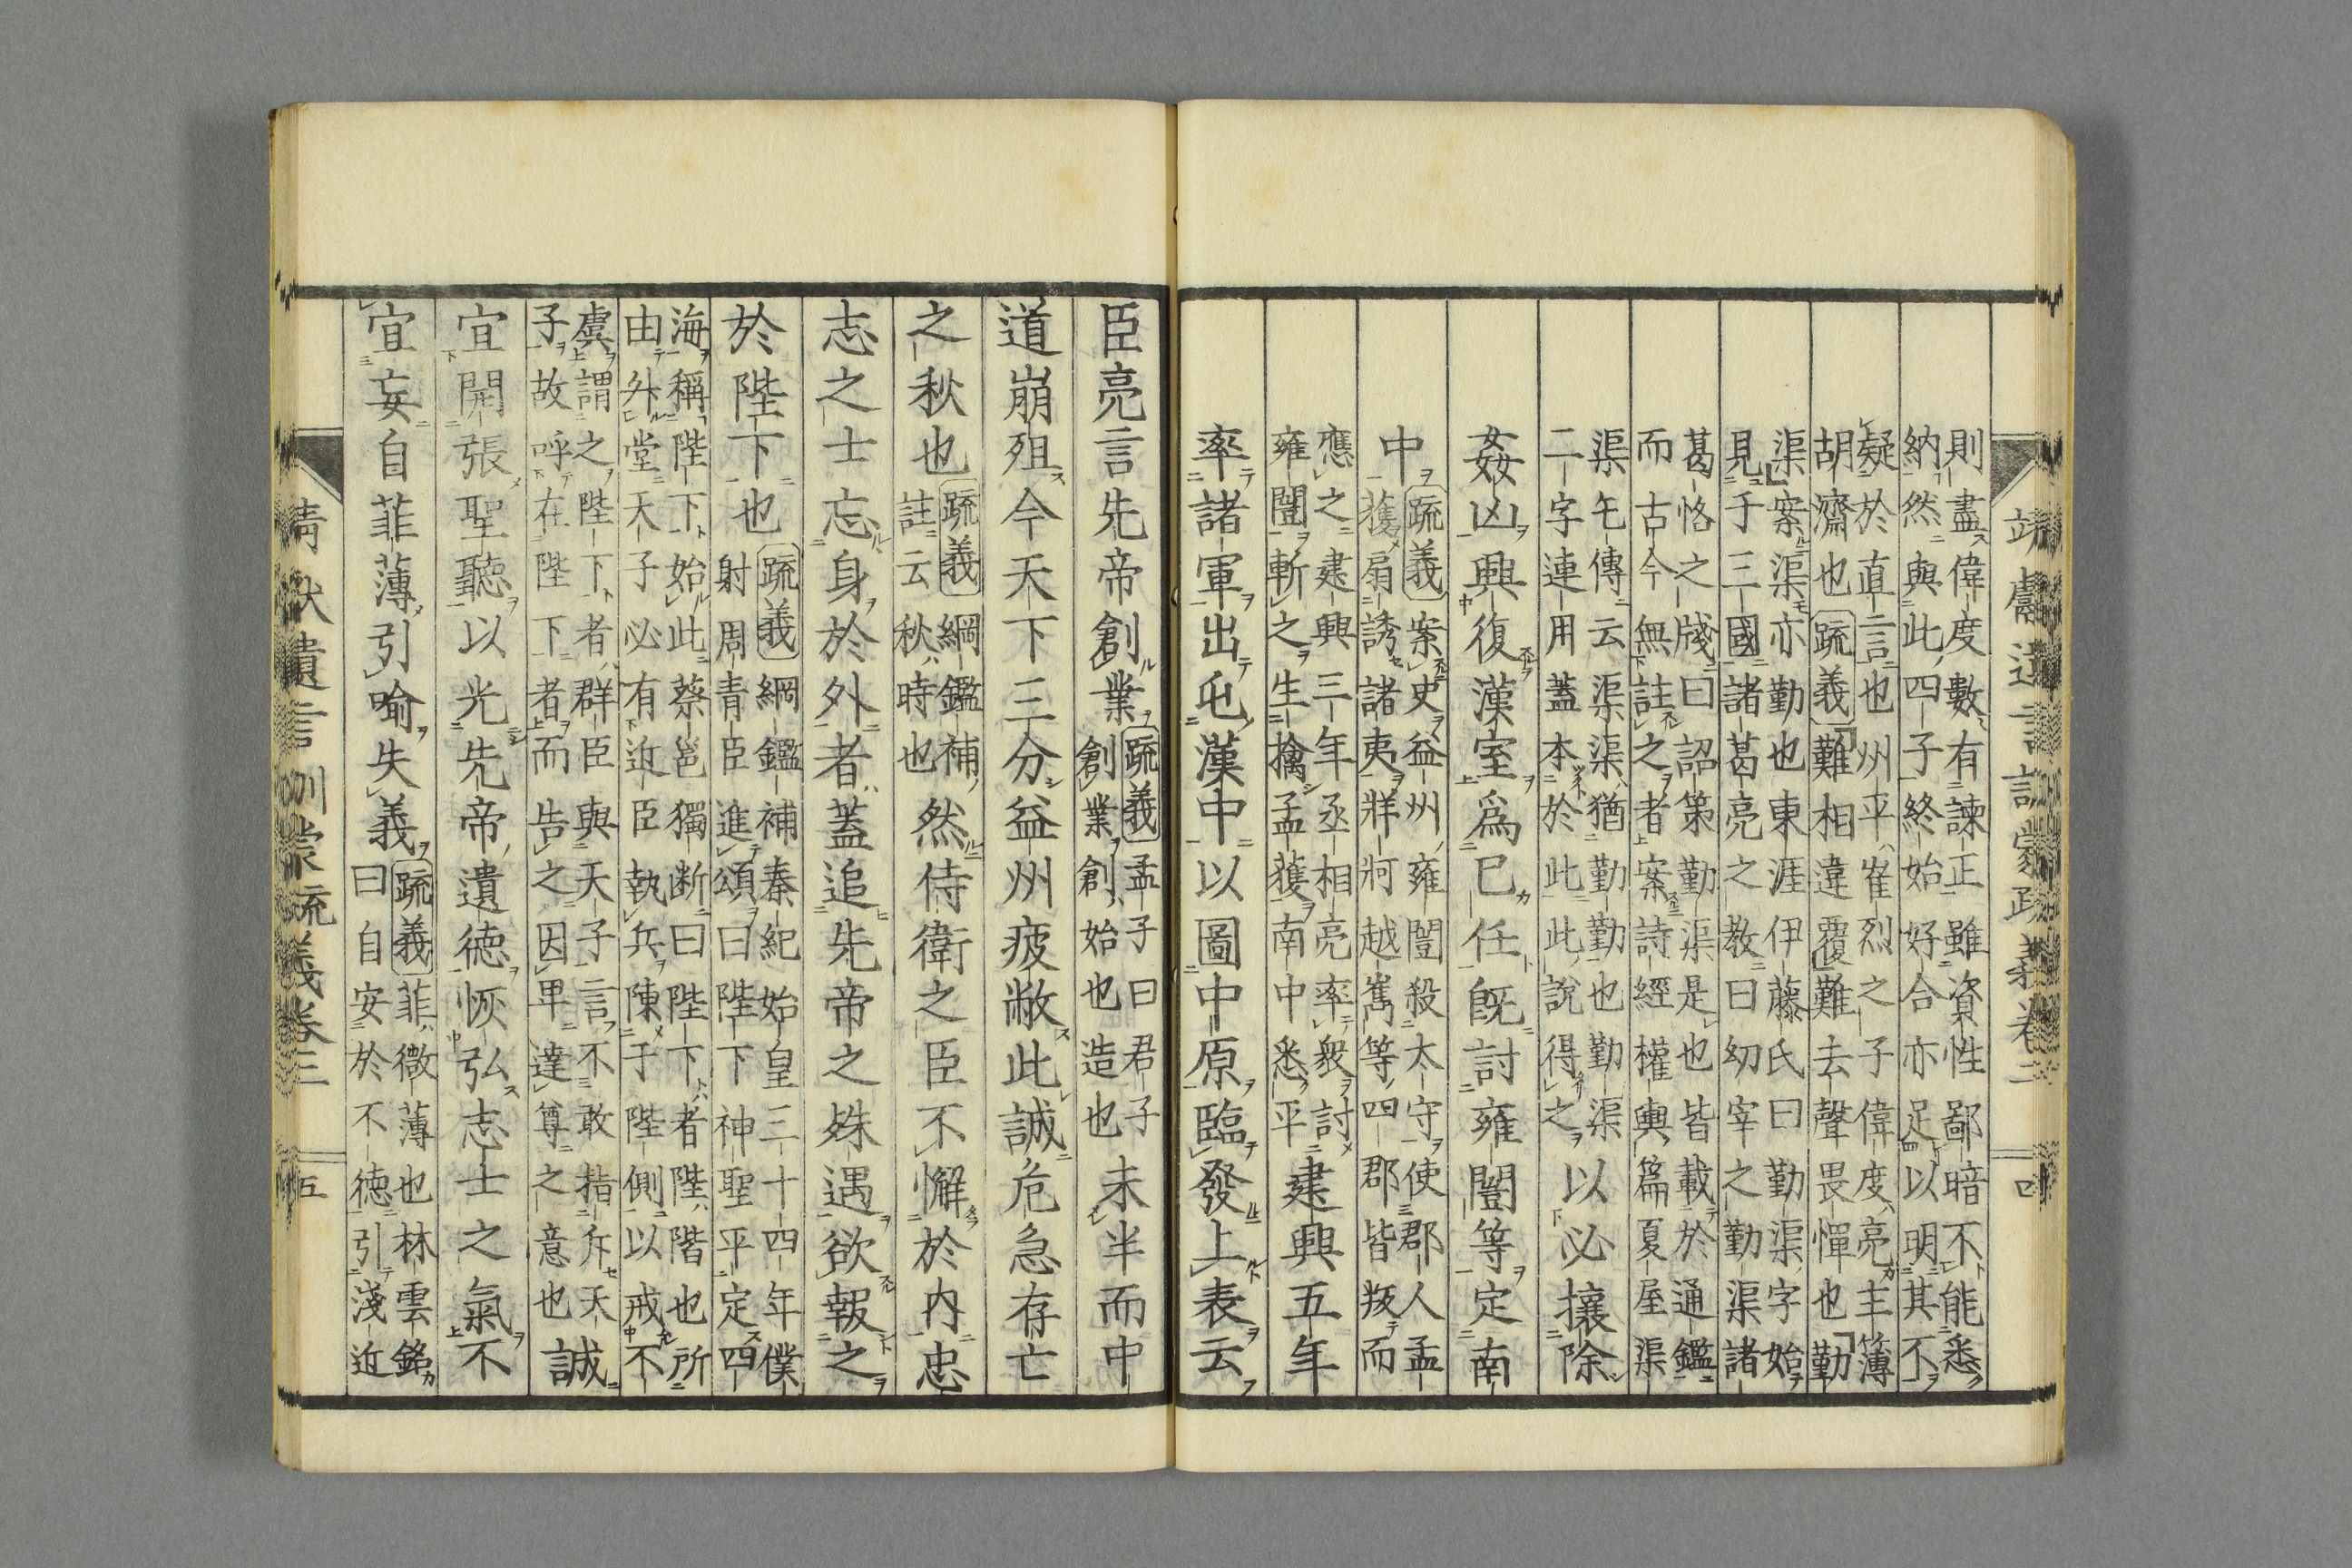 則盡偉度數有諫正雖資性鄙暗不能悉
納然與此四子終始好合亦足以明其不
疑於直言也州平崔烈之子偉度亮主簿
胡濟也疏義難相違覆難去聲畏憚也勤
渠案渠亦勤也東涯伊藤氏曰勤渠字始
見于三國諸葛亮之教曰幼宰之勤渠諸
葛恪之牋曰詔第勤渠是也皆載於通鑑
而古今無註之者案詩經權輿篇夏屋渠
渠毛傳云渠渠猶勤勤也勤渠
二字連用蓋本於此此說得之以必攘除
姦凶興復漢室爲已任旣討雍闓等定南
中疏義案史益州雍闓殺太守使郡人孟
獲扇誘諸夷牂牁越嶲等四郡皆叛而
應之建興三年丞相亮率衆討
雍闓斬之生擒孟獲南中悉平建興五年
率諸軍出屯漢中以圖中原臨發上表云
臣亮言先帝創業疏義孟子曰君子
創業創始也造也未半而中
道崩殂今天下三分益州疲敝此誠危急存亡
之秋也疏義綱鑑補
註云秋時也然侍衛之臣不懈於内忠
志之士忘身於外者蓋追先帝之殊遇欲報之
於陛下也疏義綱鑑補秦紀始皇三十四年僕
射周青臣進頌曰陛下神聖平定四
海稱陛下始此蔡邕獨断曰陛下者陛階也所
由外堂天子必有近臣執兵陳于陛側以戒不
虞謂之陛下者群臣與天子言不敢指斥天
子故呼在陛下者而告之因卑達尊之意也誠
宜開張聖聽以光先帝遺徳恢弘志士之氣不
宜妄自菲薄引喻失義疏義菲微薄也林雲銘
曰自安於不徳引淺近
靖獻遺言訓蒙疏義卷三
五
四